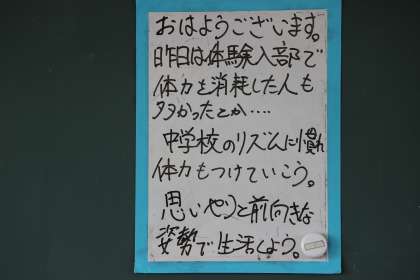 おはようございます。
昨日は体験入部で
体力を消耗した人も
多かったとか‥‥
中学校のリズムに慣れ
体力もつけていこう。
思いやりと前向きな
姿勢で生活しよう。